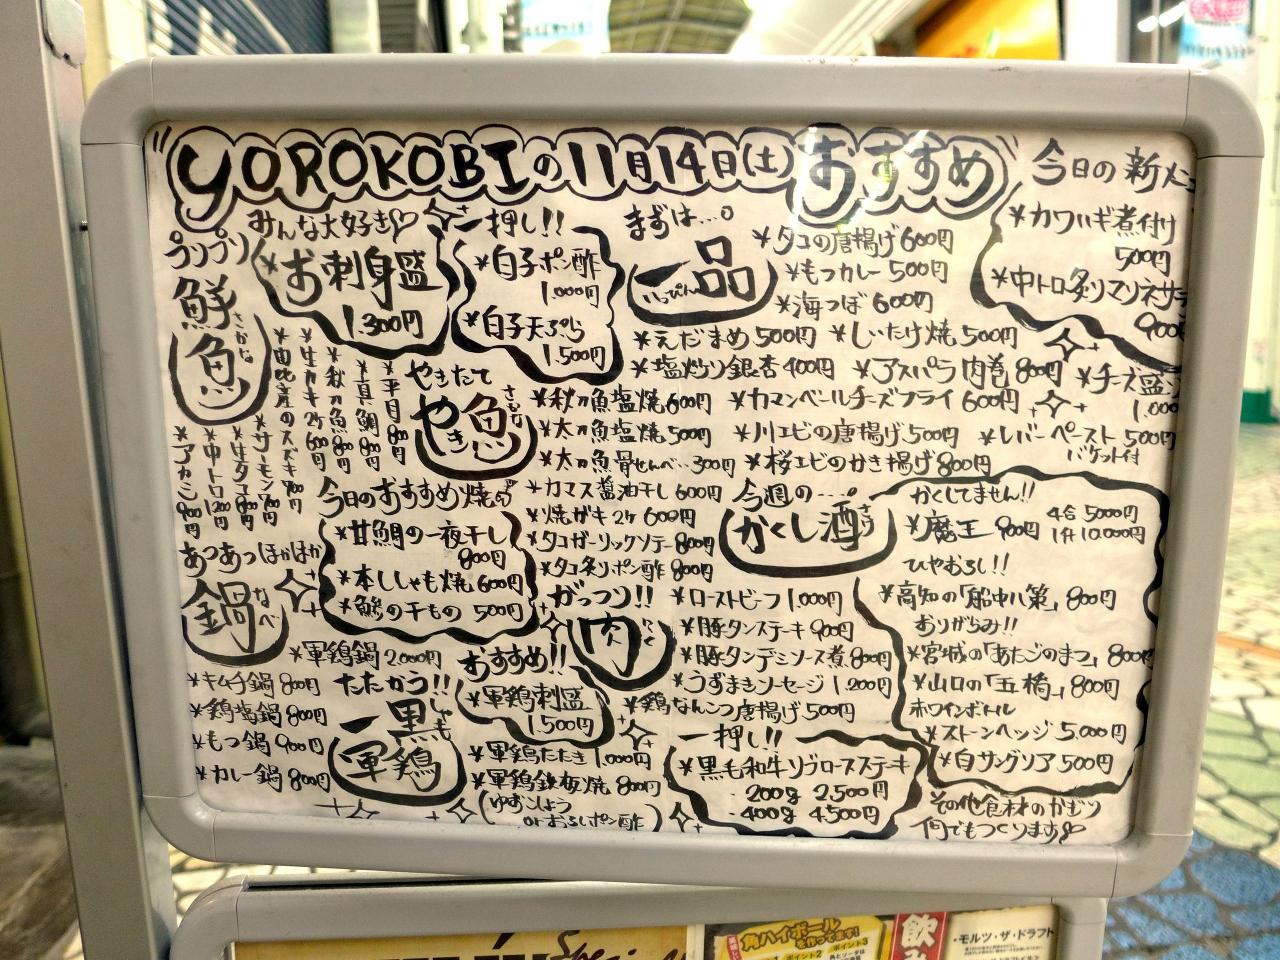 YOROKOBIの11月14日(土)おすすめ
今日の新メニ
*カワハギ煮付け
500円
*中トロ炙りマリネサラ
900円
プリプリ
鮮魚
さかな
みんな大好き♡
*お刺身盛
1.300円
一押し!!
*白子ポン酢
1.000円
*白子天ぷら
1.500円
まずは…。
一品
いっぴん
*タコの唐揚げ600円
*もつカレー500円
*海つぼ600円
*えだまめ500円 *しいたけ焼500円
*塩炒り銀杏400円 *アスパラ肉巻800円 *チーズ盛り
1.000
*カマンベールチーズフライ600円
*川エビの唐揚げ500円 *レバーペースト500円
バケット付
*桜エビのかき揚げ800円
*平目800円
*真鯛800円
*秋刀魚800円
*生カキ2ケ600円
*由比産のスズキ700円
*サーモン700円
*生タコ800円
*中トロ1200円
*アカミ900円
やきたて
やき魚
さかな
*秋刀魚塩焼600円
*太刀魚塩焼500円
*太刀魚骨せんべ…300円
*カマス醤油干し600円
*焼ガキ2ケ600円
*タコガーリックソテー800円
*タコ炙りポン酢800円
今日のおすすめ焼き
*甘鯛の一夜干し
800円
*本ししゃも焼600円
の干もの500円
あつあつほかほか
鍋
なべ
*軍鶏鍋2.000円
*キムチ鍋800円
*鶏塩鍋800円
*もつ鍋900円
*カレー鍋800円
たたかう!!
一黒軍鶏
しゃも
おすすめ!!
*軍鶏刺盛
1.500円
*軍鶏たたき1.000円
*軍鶏鉄板焼800円
(ゆずこしょう
orおろしポン酢)
がっつり!!
肉
にく
*ローストビーフ1.000円
*豚タンステーキ900円
*豚タンデミソース煮800円
*うずまきソーセージ1.200円
*鶏なんこつ唐揚げ500円
一押し!!
*黒毛和牛リブロースステーキ
・200g 2.500円
・400g 4.500円
今週の…。
かくし酒
かくしてません!!
*魔王900円 4合5000円
1升10.000円
ひやおろし!!
*高知の「船中八策」800円
おりがらみ!!
*宮城の「あたごのまつ」800円
*山口の「五橋」800円
ホワインボトル
*ストーンヘッジ5.000円
*白サングリア500円
その他食材のかぎり
何でもつくります
角ハイボール
を作ってます!
ポイント2
ポイント3
飲み
・モルツ・ザ・ドラフト